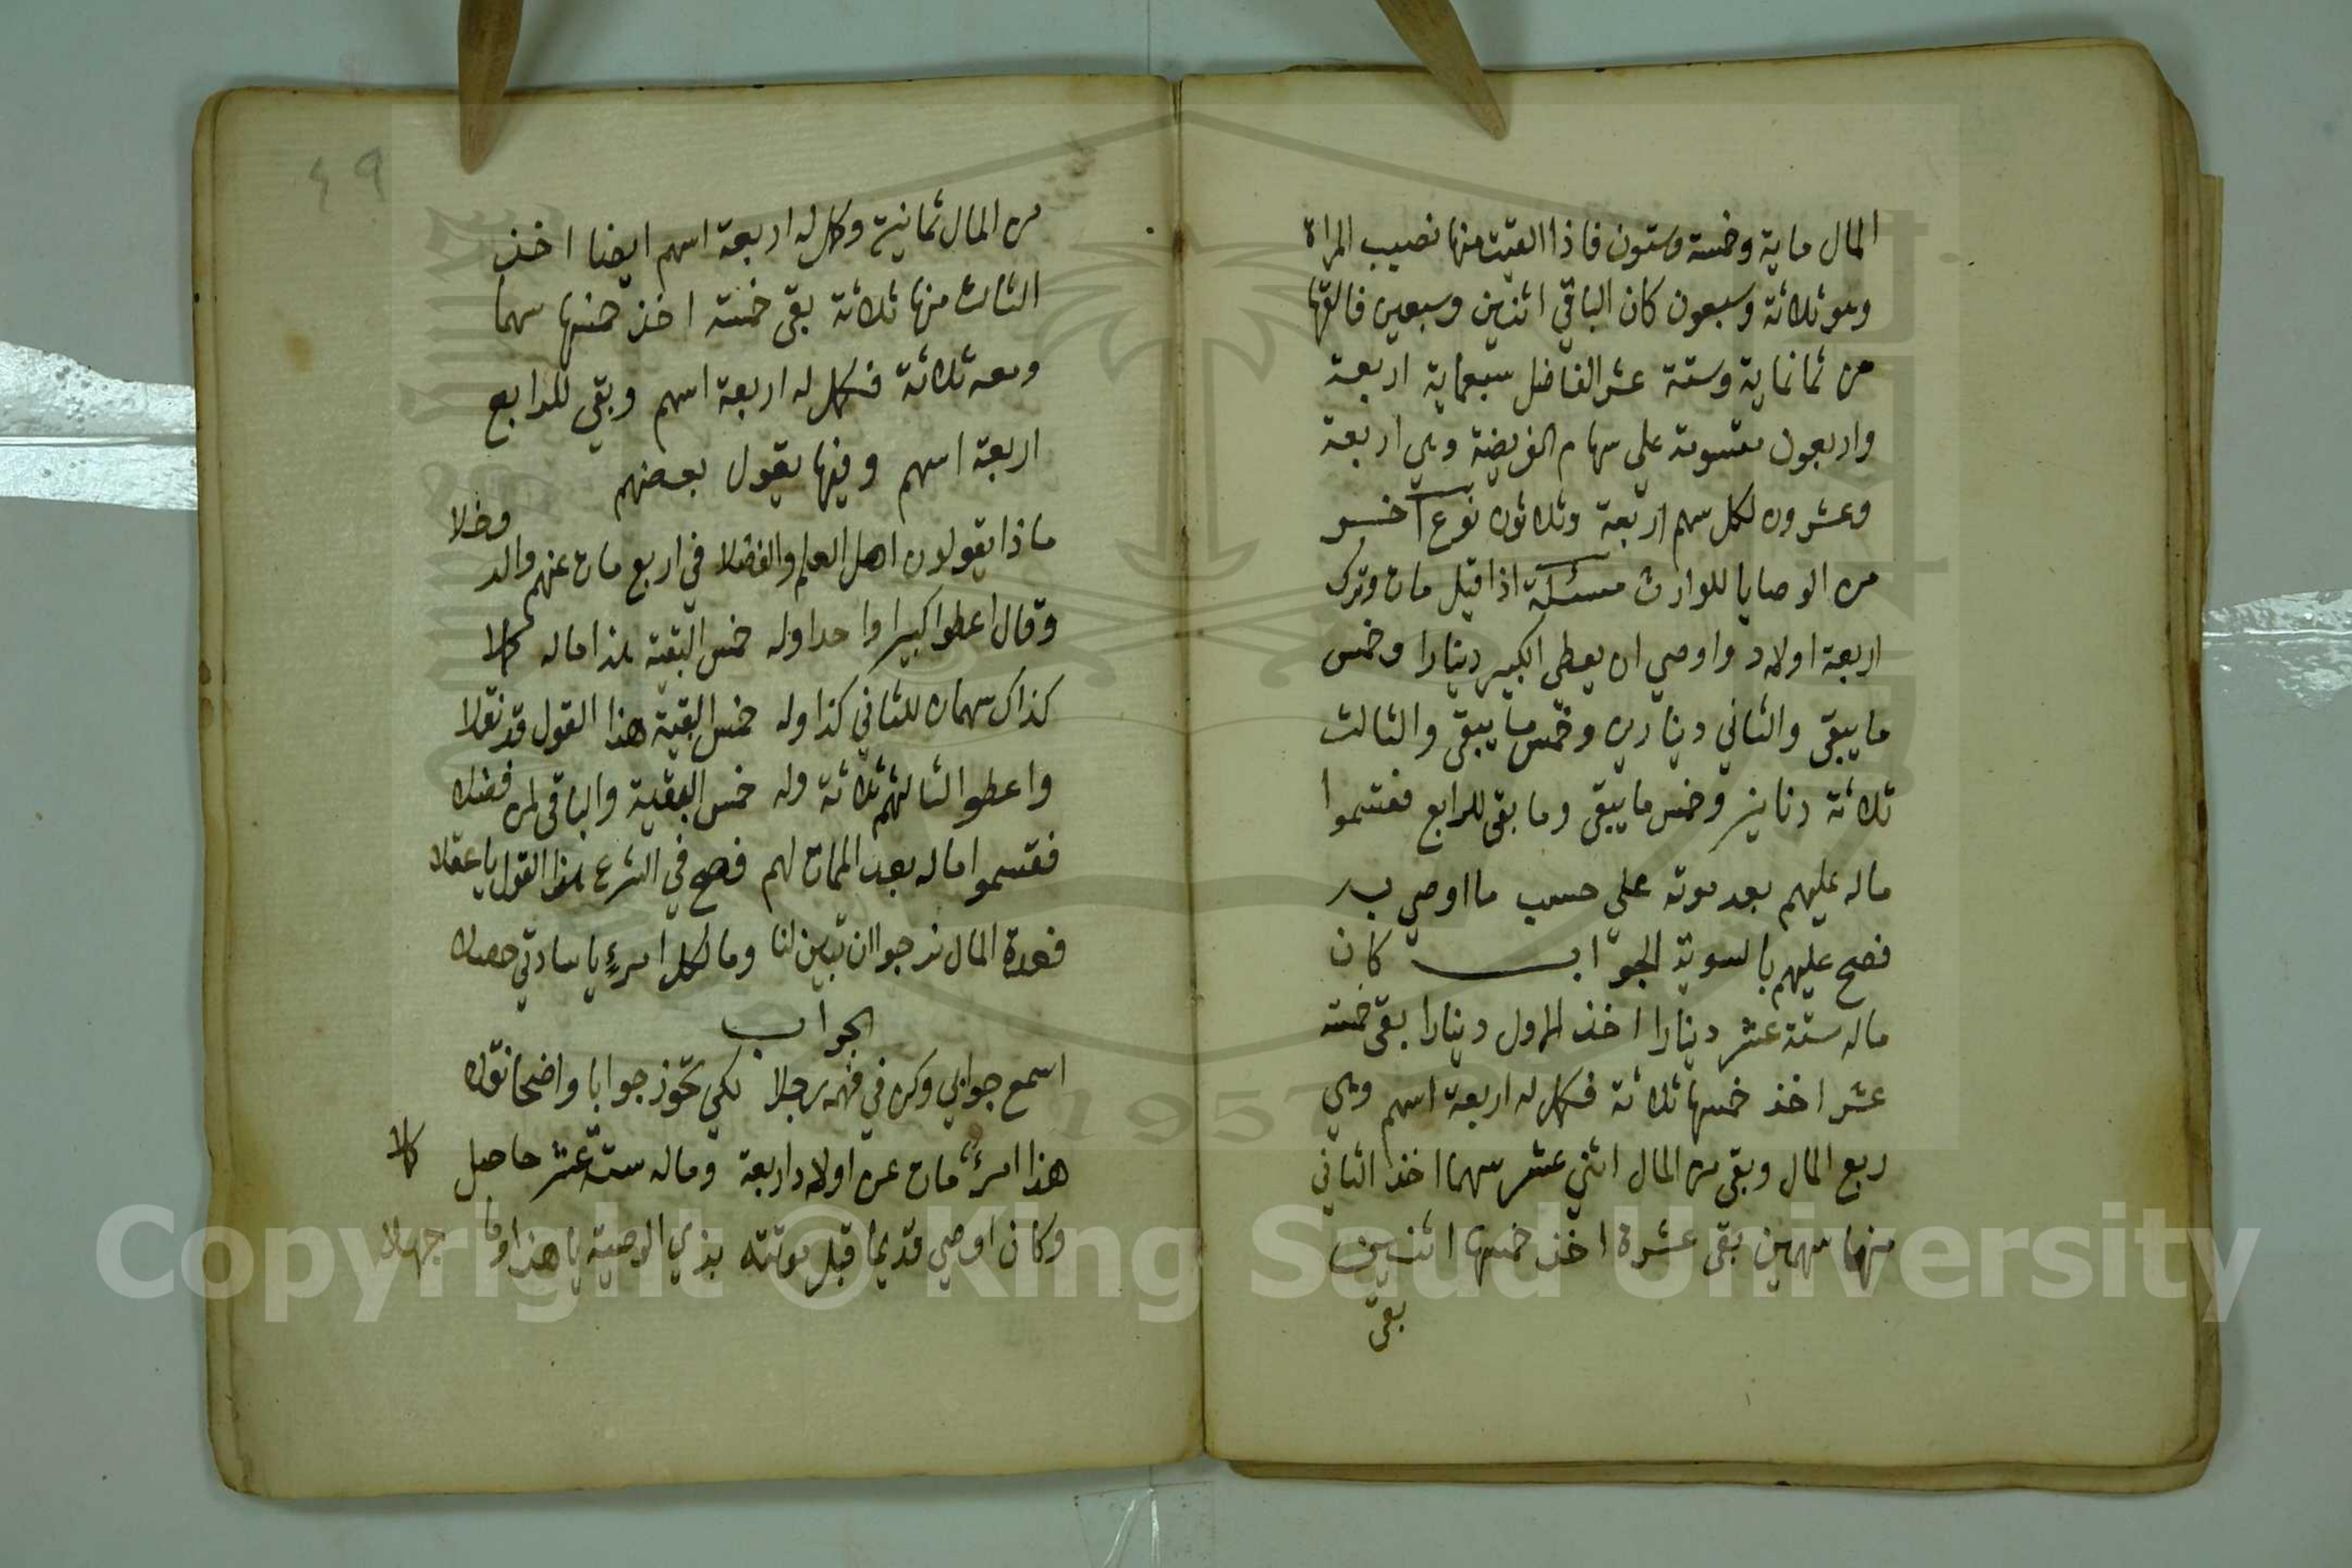 المال ماية وخمسة وستون فاذا القيت منها نصيب المراة
وهو ثلاثة وسبعون كان الباقي اثنين وسبعين فالقها
من ثمانماية وستة عشر الفاضل سبعماية اربعة
واربعون مقسومة على سهام الفريضة وهي اربعة
وعشرون لكل سهم اربعة وثلاثون نوع اخر
من الوصايا للوارث مسئلة اذا قيل مات وترك
اربعة اولاد واوصي ان يعطى الكبير دينارا وخمس
ما يبقى والثاني دينارين وخمس ما يبقى والثالث
ثلاثة دنانير وخمس ما يبقى وما بقى للرابع فقسموا
ماله عليهم بعد موته علي حسب ما اوصي به
فصح عليهم بالسوية الجواب كان
ماله ستة عشر دينارا اخذ الاول دينارا بقى خمسة
عشر اخذ خمسها ثلاثة فكمل له اربعة اسهم وهي
ربع المال وبقى من المال اثني عشر سهما اخذ الثاني
منها سهمين بقى عشرة اخذ خمسها اثنين
بقى
٤٩
من المال ثمانية وكمل له اربعة اسهم ايضا اخذ
الثالث منها ثلاثة بقى خمسة اخذ خمسها سهما
ومعه ثلاثة فكمل له اربعة اسهم وبقي للرابع
اربعة اسهم وفيها يقول بعضهم
ماذا يقولون اهل العلم والفضلا في اربع مات عنهم والد وخلا
وقال اعطوا كبيرا واحدا وله خمس البقية هذا ماله كملا
كذاك سهمان للثاني كذا وله خمس البقية هذا القول قد نقلا
واعطوا الثالثهم ثلاثة وله خمس البقية والباقي لمن فضلا
فقسموا ماله بعد الممات لهم فصح في الشرع هذا القول يا عقلا
فعدة المال نرجوا ان تبين لنا وما لكل امرءٍ يا سادتي حصلا
الجواب
اسمع جوابي وكن في فهمه رجلا لكي تحوز جوابا واضحا نقلا
هذا امرئ مات عن اولاد اربعة وماله ستة عشر حاصل كملا
وكان اوصي قديما قبل موتته بذي الوصية يا هذا وما جهلا
1957
Copyright © King Saud University